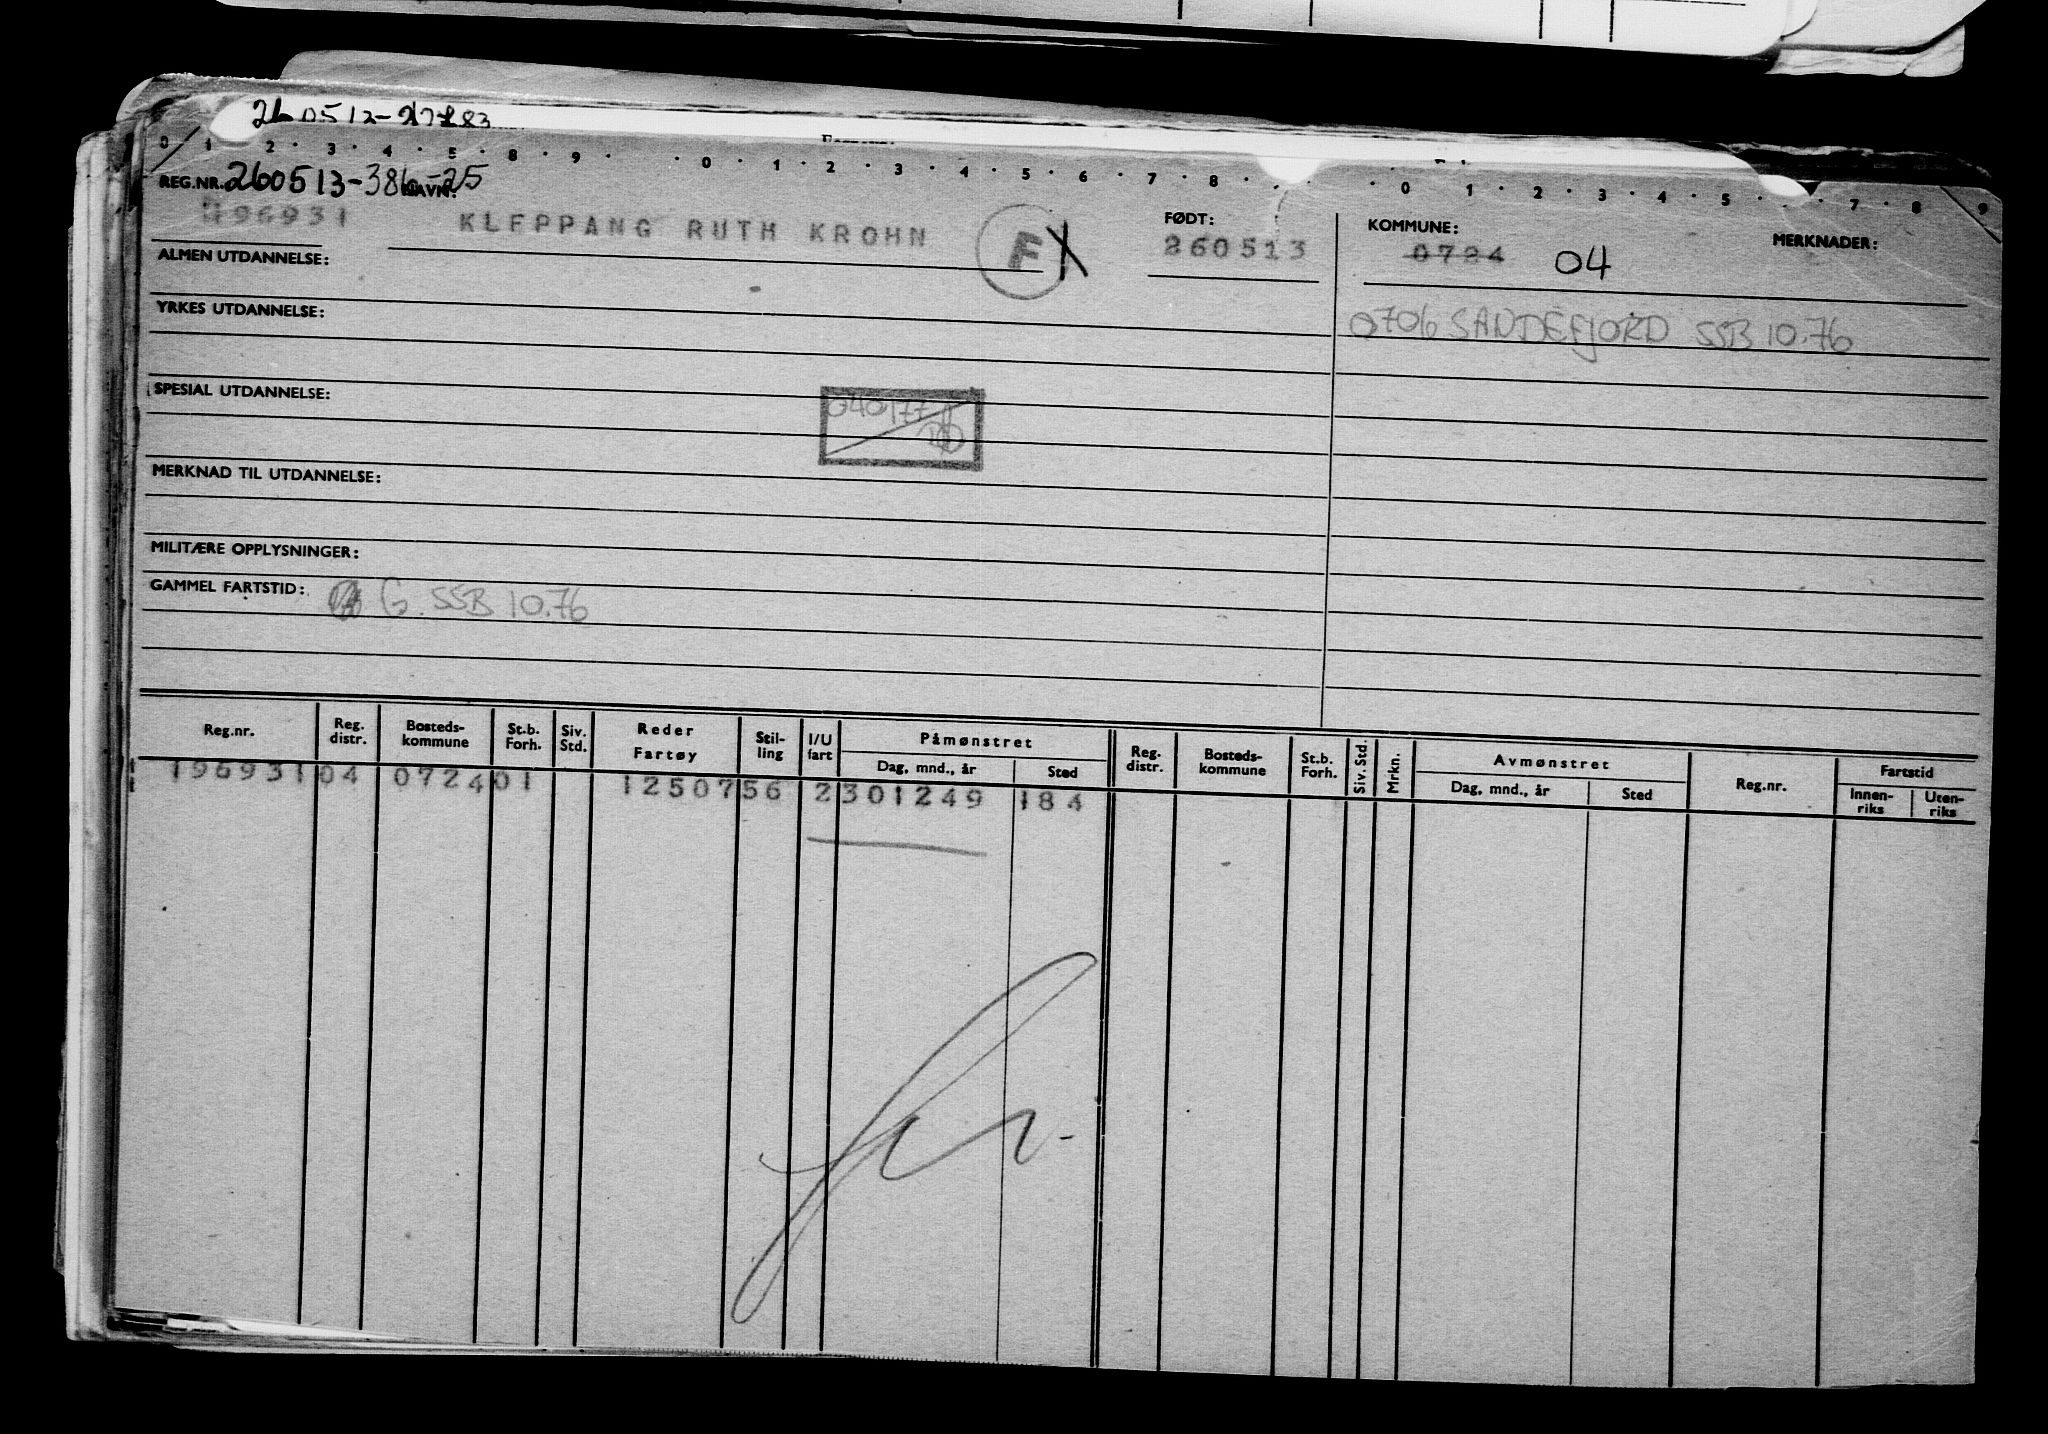 260513-
0 1 2 3 4 5 8 9 0 1 2 3 4 5 6 7 8 0 1 2 3 4 5 7 8 9
REG.NR. 260513-386-25 NAVN: FØDT: KOMMUNE: MERKNADER:
196931 KLEPPANG RUTH KROHN F X 260513 0724 04
ALMEN UTDANNELSE:
YRKES UTDANNELSE: 0706 SANDEFJORD SSB 10.76
SPESIAL UTDANNELSE: 040177
MERKNAD TIL UTDANNELSE:
MILITÆRE OPPLYSNINGER:
GAMMEL FARTSTID: G. SSB 10.76
Reg.nr. Reg. distr. Bosteds-kommune St.b. Forh. Siv. Std. Reder Fartøy Stil-ling I/U fart Påmønstret Dag, mnd., år Sted Reg. distr. Bosteds-kommune St.b. Forh. Siv. Std. Mrkn. Avmønstret Dag, mnd., år Sted Reg.nr. Fartstid Innen-riks Uten-riks
196931 04 0724 01 12507 56 2 301249 184